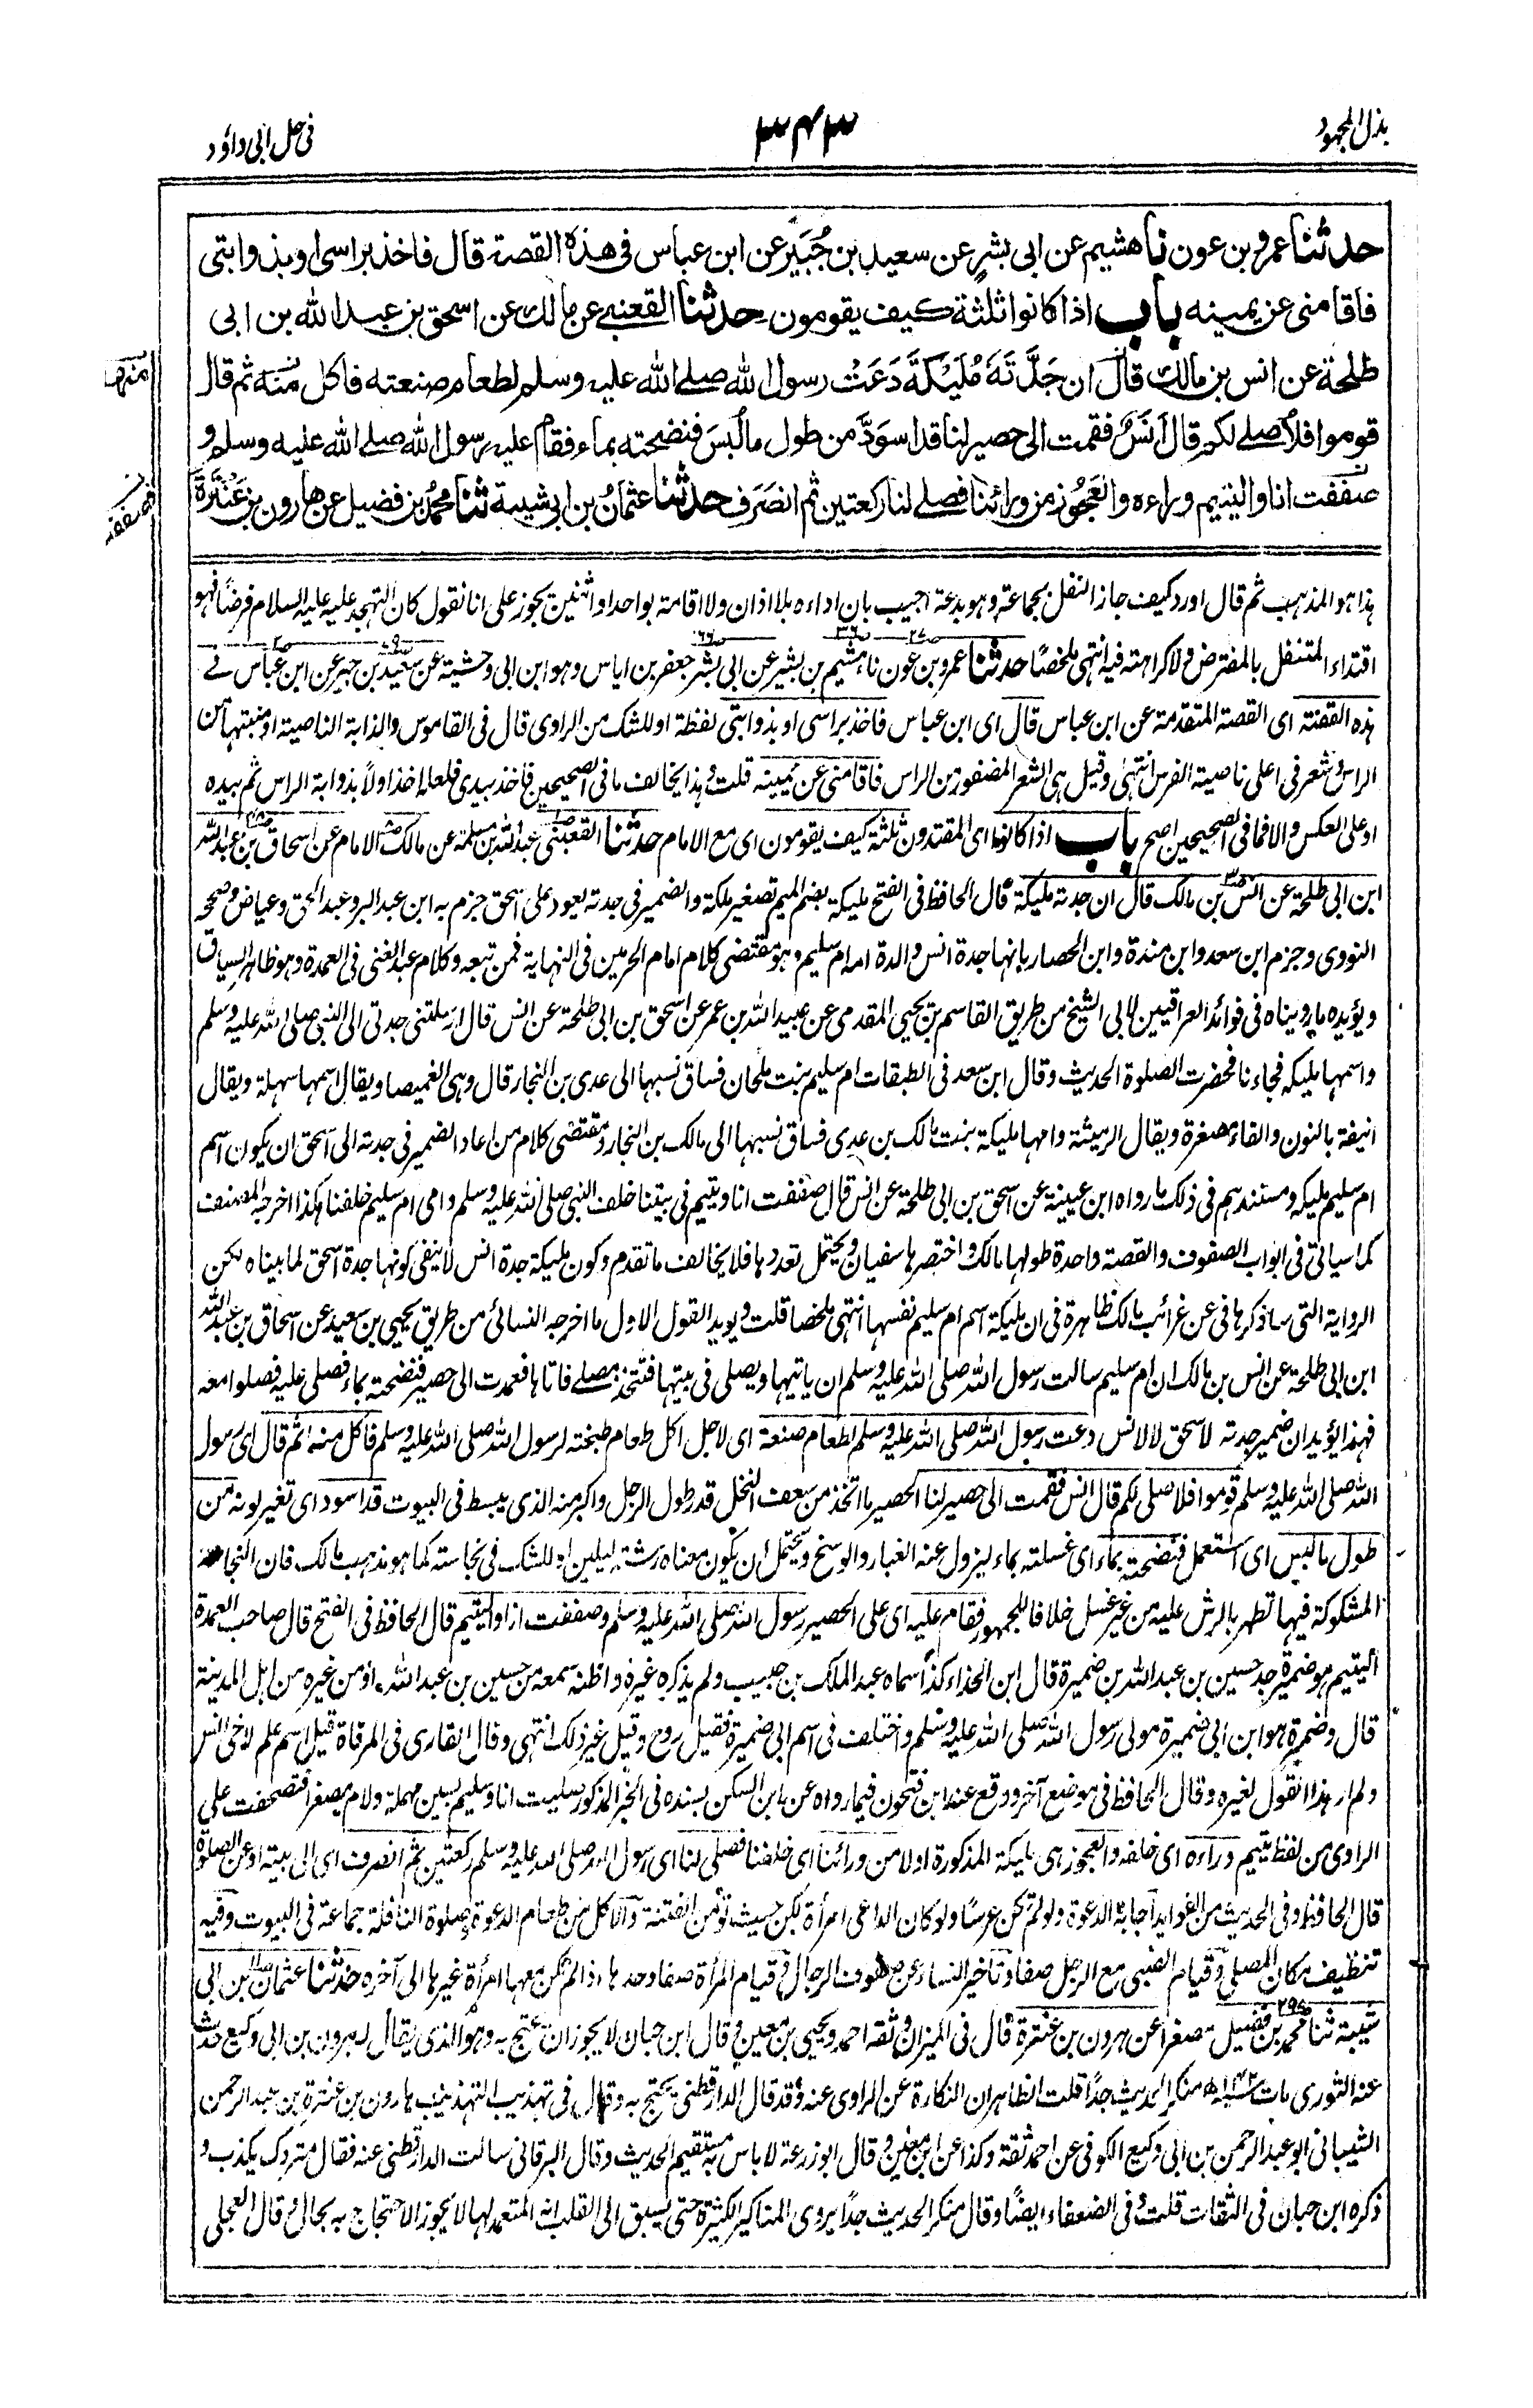 بذل المجهود
٣٤٣
فی حل ابی داؤد
حدثنا عمرو بن عون نا هشیم عن ابی بشر عن سعید بن جُبَیر عن ابن عباس فی هذه القصة قال فاخذ براسی او بذوابتی
فاقامنی عن یمینه باب اذا کانوا ثلثة کیف یقومون حدثنا القعنبی عن مالک عن اسحق بن عبد الله بن ابی
طلحة عن انس بن مالک قال ان جَدَّتَهُ مُلَیکَةَ دَعَتْ رسول الله صلی الله علیه وسلم لطعام صنعته فاکل منه ثم قال
قوموا فلأصلے لکم قال اَنَسٌ فقمت الی حصیر لنا قد اسوَدَّ من طول ما لُبِسَ فنضحته بماء فقام علیه رسول الله صلے الله علیه وسلم و
صففت انا والیتیم وراءه والعجوز من ورائنا فصلے لنا رکعتین ثم انصَرَف حدثنا عثمانُ بن ابی شیبة ثنا محمدُ بن فضیل عن هارون بن عَنتَرة
منها
فصففت
هذا هو المذهب ثم قال اورد کیف جاز النفل بجماعة وهو بدعة اجیب بان اداءه بلا اذان ولا اقامة بواحد او اثنین یجوز علی انا نقول کان التهجد علیه علیه السلام فرضًا فهو
اقتداء المتنفل بالمفترض ولا کراهته فیه انتهی ملخصًا حدثنا عمرو بن عون نا هشیم بن بشیر عن ابی بشر جعفر بن ایاس وهو ابن ابی وحشیة عن سعید بن جبیر عن ابن عباس فے
هذه القصة ای القصة المتقدمة عن ابن عباس قال ای ابن عباس فاخذ براسی او بذوابتی لفظة او للشک من الراوی قال فی القاموس والذابة الناصیة او منبتها من
الراس وشعر فی اعلی ناصیة الفرس انتهیٰ وقیل هی الشعر المضفور من الراس فاقامنی عن یمینه قلت وهذا یخالف ما فی الصحیحین فاخذ بیدی فلعله اخذ اولاً بذوابة الراس ثم بیده
او علی العکس والا فما فی الصحیحین اصح باب اذا کانوا ای المقتدون ثلثة کیف یقومون ای مع الامام حدثنا القعنبی عبد الله بن مسلمة عن مالک الامام عن اسحاق بن عبد الله
ابن ابی طلحة عن انس بن مالک قال ان جدته ملیکة قال الحافظ فی الفتح ملیکة بضم المیم تصغیر ملکة والضمیر فی جدته یعود علی اسحق جزم به ابن عبد البر وعبد الحق وعیاض وصححه
النووی وجزم ابن سعد وابن مندة وابن الحصار بانها جدة انس والدة امه ام سلیم وهو مقتضی کلام امام الحرمین فی النهایة فمن تبعه وکلام عبد الغنی فی العمدة وهو ظاهر السیاق
ویؤیده ما رویناه فی فوائد العراقیین لابی الشیخ من طریق القاسم بن یحیی المقدمی عن عبید الله بن عمر عن اسحق بن ابی طلحة عن انس قال ارسلتنی جدتی الی النبی صلی الله علیه وسلم
واسمها ملیکه فجاءنا فحضرت الصلوة الحدیث وقال ابن سعد فی الطبقات ام سلیم بنت ملحان فساق نسبها الی عدی بن النجار قال وهی الغمیصا ویقال اسمها سهلة ویقال
انیفة بالنون والفاء مصغرة ویقال الرمیثة وامها ملیکة بنت مالک بن عدی فساق نسبها الی مالک بن النجار ومقتضی کلام من اعاد الضمیر فی جدته الی اسحق ان یکون اسم
ام سلیم ملیکه ومستندهم فی ذلک ما رواه ابن عیینة عن اسحق بن ابی طلحة عن انس قال صففت انا ویتیم فی بیتنا خلف النبی صلی الله علیه وسلم وامی ام سلیم خلفنا هکذا اخرجه المصنف
کما سیاتی فی ابواب الصفوف والقصة واحدة طولها مالک واختصرها سفیان ویحتمل تعددها فلا یخالف ما تقدم وکون ملیکة جدة انس لا ینفی کونها جدة اسحق لما بیناه لکن
الروایة التی ساذکرها فی عن غرائب مالک ظاهرة فی ان ملیکة اسم ام سلیم نفسها انتهی ملخصا قلت ویوید القول الاول ما اخرجه النسائی من طریق یحیی بن سعید عن اسحاق بن عبد الله
ابن ابی طلحة عن انس بن مالک ان ام سلیم سالت رسول الله صلی الله علیه وسلم ان یاتیها ویصلی فی بیتها فتتخذه مصلے فاتاها فعمدت الی حصیر فنضحته بماء فصلی علیه فصلوا معه
فهذا یؤید ان ضمیر جدته لاسحق لا لانس دعت رسول الله صلی الله علیه وسلم لطعام صنعة ای لاجل اکل طعام طبخته لرسول الله صلی الله علیه وسلم فاکل منه ثم قال ای رسول
الله صلی الله علیه وسلم قوموا فلا صلی لکم قال انس فقمت الی حصیر لنا الحصیر ما اتخذ من سعف النخل قدر طول الرجل واکبر منه الذی یبسط فی البیوت قد اسود ای تغیر لونه من
طول ما لبس ای استعمل فنضحته بماء ای غسلته بماء لیزول عنه الغبار والوسخ ویحتمل ان یکون معناه رشته لیلین او للشک فی نجاسته کما هو مذهب مالک فان النجاسة
المشکوکة فیها تطهر بالرش علیه من غیر غسل خلافا للجمهور فقام علیه ای علی الحصیر رسول الله صلی الله علیه وسلم وصففت انا والیتیم قال الحافظ فی الفتح قال صاحب العمدة
الیتیم هو ضمیرة جد حسین بن عبد الله بن ضمیرة قال ابن الحذاء کذا سماه عبد الملک بن حبیب ولم یذکره غیره واظنه سمعه من حسین بن عبد الله او من غیره من اهل المدینة
قال وضمیرة هو ابن ابی ضمیرة مولی رسول الله صلی الله علیه وسلم واختلف فی اسم ابی ضمیرة فقیل روح وقیل غیر ذلک انتهی وقال القاری فی المرقاة قیل اسم علم لاخی انس
ولم ار هذا القول لغیره وقال الحافظ فی موضع آخر ووقع عند ابن فتحون فیما رواه عن ابن السکن بسنده فی الخبر المذکور صلیت انا وسلیم بسین مهملة ولام مصغرا فتصحفت علی
الراوی من لفظ یتیم وراءه ای خلفه والعجوز هی ملیکة المذکورة اولا من ورائنا ای خلفنا فصلی لنا ای رسول الله صلی الله علیه وسلم رکعتین ثم انصرف ای الی بیته او عن الصلوة
قال الحافظ وفی الحدیث من الفواید اجابة الدعوة ولو لم تکن عرسًا ولو کان الداعی امرأة لکن حیث تؤمن الفتنة والاکل من طعام الدعوة وصلوة النافلة جماعة فی البیوت وفیه
تنظیف مکان المصلی وقیام الصبی مع الرجل صفا وتاخیر النساء عن صفوف الرجال وقیام المرأة صفا وحدها اذا لم تکن معها امرأة غیرها الی آخره حدثنا عثمان بن ابی
شیبة ثنا محمد بن فضیل مصغرا عن هرون بن عنترة قال فی المیزان وثقه احمد ویحیی بن معین وقال ابن حبان لا یجوز ان یحتج به وهو الذی یقال له هرون بن ابی وکیع حدث
عنه الثوری مات سنة ١٤٢ھ منکر الحدیث جدًا قلت الظاهر ان النکارة عن الراوی عنه وقد قال الدارقطنی یحتج به وقال فی تهذیب التهذیب هارون بن عنترة بن عبد الرحمن
الشیبانی ابو عبد الرحمن بن ابی وکیع الکوفی عن احمد ثقة وکذا عن ابن معین وقال ابو زرعة لا باس به مستقیم الحدیث وقال البرقانی سالت الدارقطنی عنه فقال متروک یکذب و
ذکره ابن حبان فی الثقات قلت وفی الضعفاء ایضًا وقال منکر الحدیث جدًا یروی المناکیر الکثیرة حتی یسبق الی القلب انه المتعمد لها لا یجوز الاحتجاج به بحال وقال العجلی